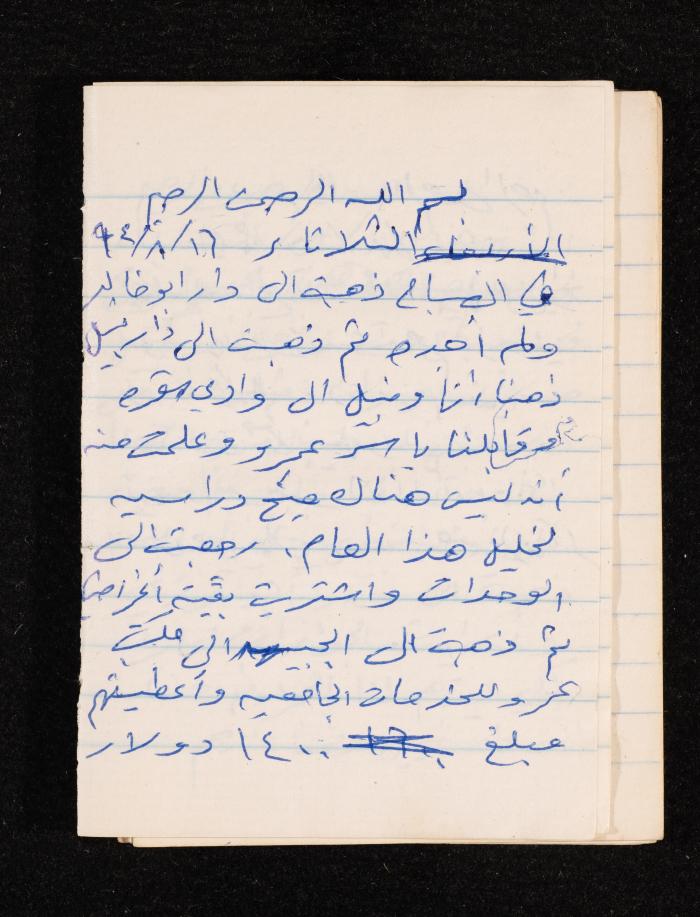 بسم الله الرحمن الرحيم
الأربعاء الثلاثاء ١٦/٨/٩٤
في الصباح ذهبت الى دار ابو خالد
ولم أجده ثم ذهبت الى دار نبيل
ذهبنا انا ونبيل الى وادي
وقابلنا ياسر عمرو وعلمت منه
أنه ليس هناك منح دراسيه
لخليل هذا العام. رجعت الى
الوحدات واشتريت بقية أغراضي
ثم ذهبت الى الجسر الى مكتب
عمرو للخدمات الجامعيه وأعطيتهم
مبلغ ١٦٠٠ ١٤٠٠ دولار